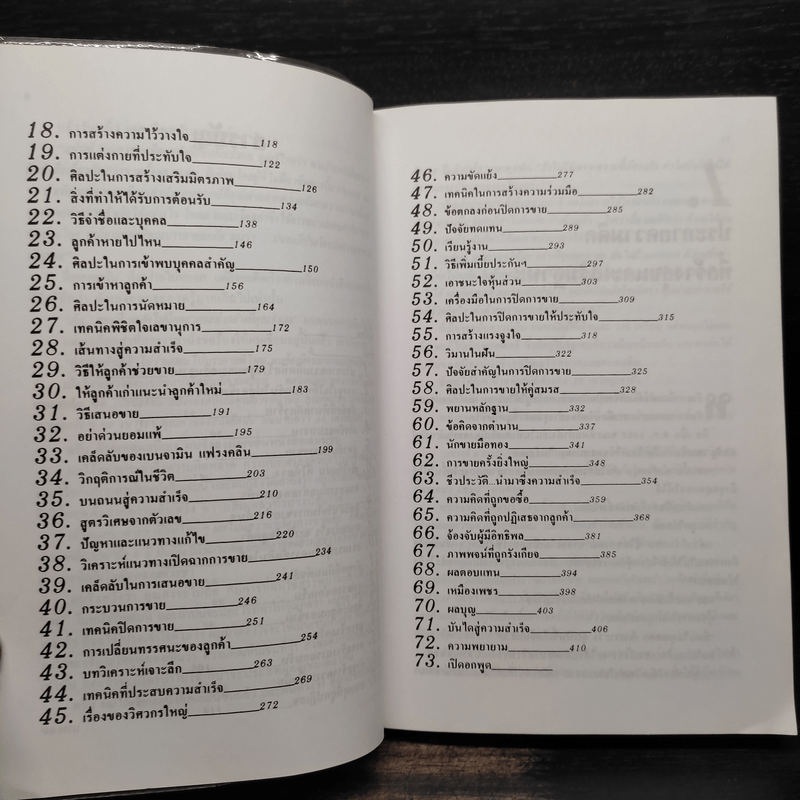 18. การสร้างความไว้วางใจ 118
19. การแต่งกายที่ประทับใจ 122
20. ศิลปะในการสร้างเสริมมิตรภาพ 126
21. สิ่งที่ทำให้ได้รับการต้อนรับ 134
22. วิธีจำชื่อและบุคคล 138
23. ลูกค้าหายไปไหน 146
24. ศิลปะในการเข้าพบบุคคลสำคัญ 150
25. การเข้าหาลูกค้า 156
26. ศิลปะในการนัดหมาย 164
27. เทคนิคพิชิตใจเลขานุการ 172
28. เส้นทางสู่ความสำเร็จ 175
29. วิธีให้ลูกค้าช่วยขาย 179
30. ให้ลูกค้าเก่าแนะนำลูกค้าใหม่ 183
31. วิธีเสนอขาย 191
32. อย่าด่วนยอมแพ้ 195
33. เคล็ดลับของเบนจามิน แฟรงคลิน 199
34. วิกฤติการณ์ในชีวิต 203
35. บนถนนสู่ความสำเร็จ 210
36. สูตรวิเศษจากตัวเลข 216
37. ปัญหาและแนวทางแก้ไข 220
38. วิเคราะห์แนวทางเปิดฉากการขาย 234
39. เคล็ดลับในการเสนอขาย 241
40. กระบวนการขาย 246
41. เทคนิคปิดการขาย 251
42. การเปลี่ยนทรรศนะของลูกค้า 254
43. บทวิเคราะห์เจาะลึก 263
44. เทคนิคที่ประสบความสำเร็จ 269
45. เรื่องของวิศวกรใหญ่ 272
46. ความขัดแย้ง 277
47. เทคนิคในการสร้างความร่วมมือ 282
48. ข้อตกลงก่อนปิดการขาย 285
49. ปัจจัยทดแทน 289
50. เรียนรู้งาน 293
51. วิธีเพิ่มเบี้ยประกันฯ 297
52. เอาชนะใจหุ้นส่วน 303
53. เครื่องมือในการปิดการขาย 309
54. ศิลปะในการปิดการขายให้ประทับใจ 315
55. การสร้างแรงจูงใจ 318
56. วิมานในฝัน 322
57. ปัจจัยสำคัญในการปิดการขาย 325
58. ศิลปะในการขายให้คู่สมรส 328
59. พยานหลักฐาน 332
60. ข้อคิดจากตำนาน 337
61. นักขายมือทอง 341
62. การขายครั้งยิ่งใหญ่ 348
63. ชีวประวัติ...นำมาซึ่งความสำเร็จ 354
64. ความคิดที่ถูกขอซื้อ 359
65. ความคิดที่ถูกปฏิเสธจากลูกค้า 368
66. จ้องจับผู้มีอิทธิพล 381
67. ภาพพจน์ที่ถูกรังเกียจ 385
68. ผลตอบแทน 394
69. เหมืองเพชร 398
70. ผลบุญ 403
71. บันไดสู่ความสำเร็จ 406
72. ความพยายาม 410
73. เปิดอกพูด